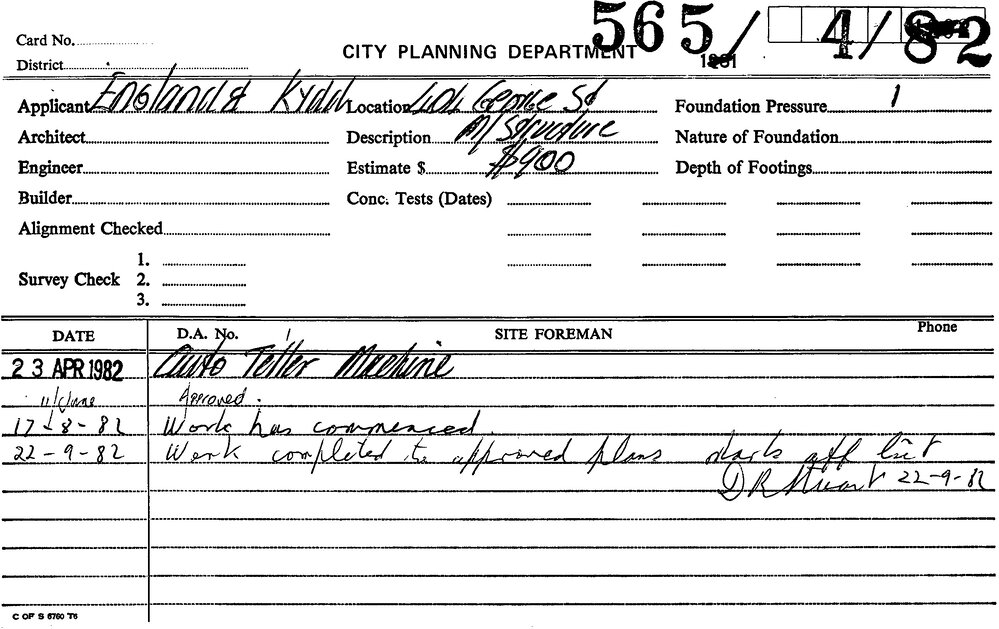 565/ 4/82
Card No.
CITY PLANNING DEPARTMENT
District
1981
Applicant England & Kydd Location George St Foundation Pressure
Architect Description M/ Structure Nature of Foundation
Engineer Estimate $ $900 Depth of Footings
Builder Conc. Tests (Dates)
Alignment Checked
1.
Survey Check 2.
3.
DATE D.A. No. SITE FOREMAN Phone
23 APR 1982 Auto Teller Machine
11/June Approved.
17-8-82 Work has commenced.
22-9-82 Work completed to approved plans marks off list
D R Stuart 22-9-82
C OF S 6760 T6